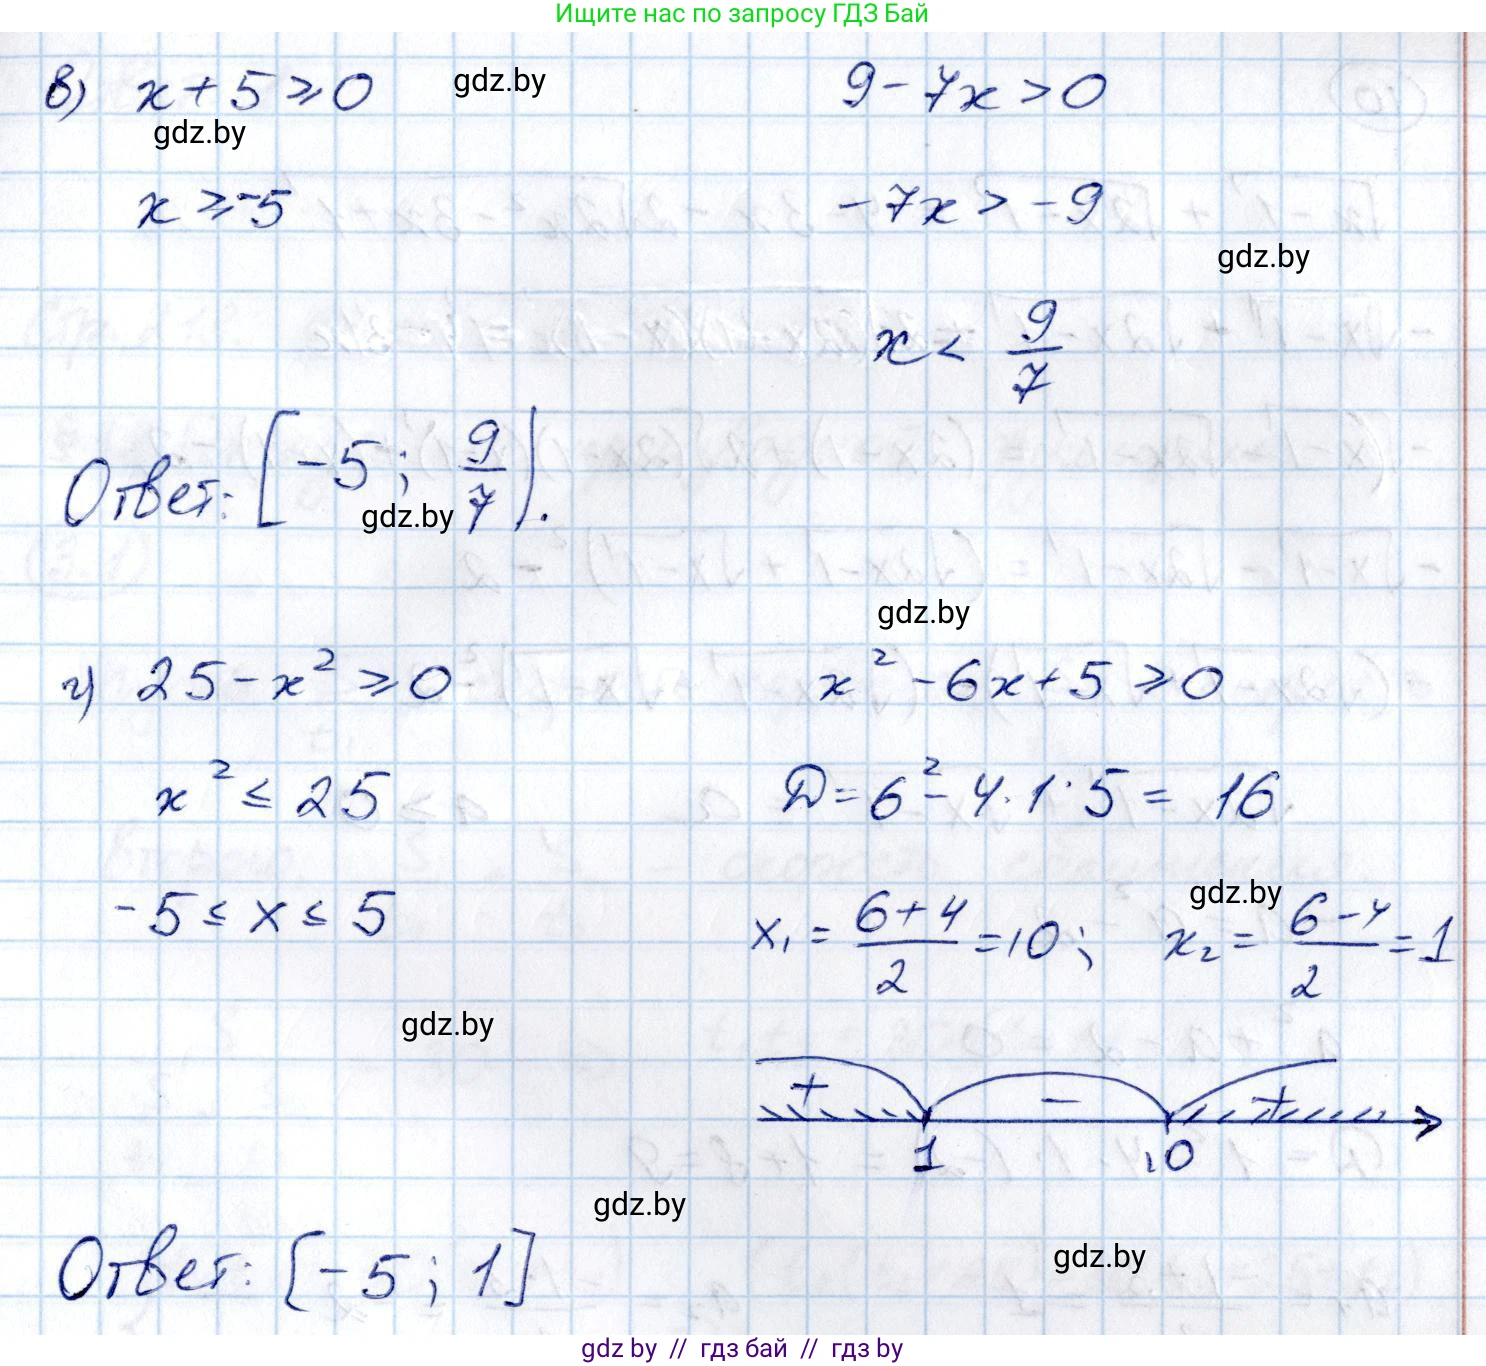 Ищите нас по запросу ГДЗ Бай
в) x + 5 ≥ 0 gdz.by 9 - 7x > 0
gdz.by
x ≥ -5 -7x > -9
gdz.by
x < 9/7
Ответ: [-5; 9/7).
gdz.by
gdz.by
г) 25 - x² ≥ 0 x² - 6x + 5 ≥ 0
x² ≤ 25 D = 6² - 4·1·5 = 16
gdz.by
-5 ≤ x ≤ 5 x₁ = (6+4)/2 = 10; x₂ = (6-4)/2 = 1
gdz.by
+ - +
1 10
gdz.by
Ответ: [-5; 1]
gdz.by
gdz by // гдз бай // гдз by